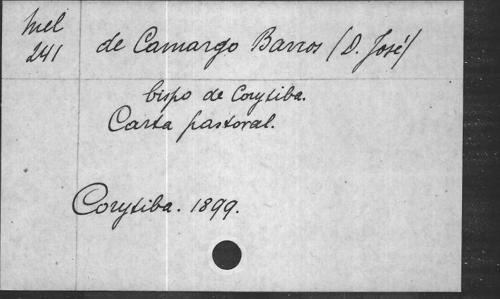 Mel
241
de Camargo Barros (D. José)
bispo de Corytiba.
Carta pastoral.
Corytiba. 1899.